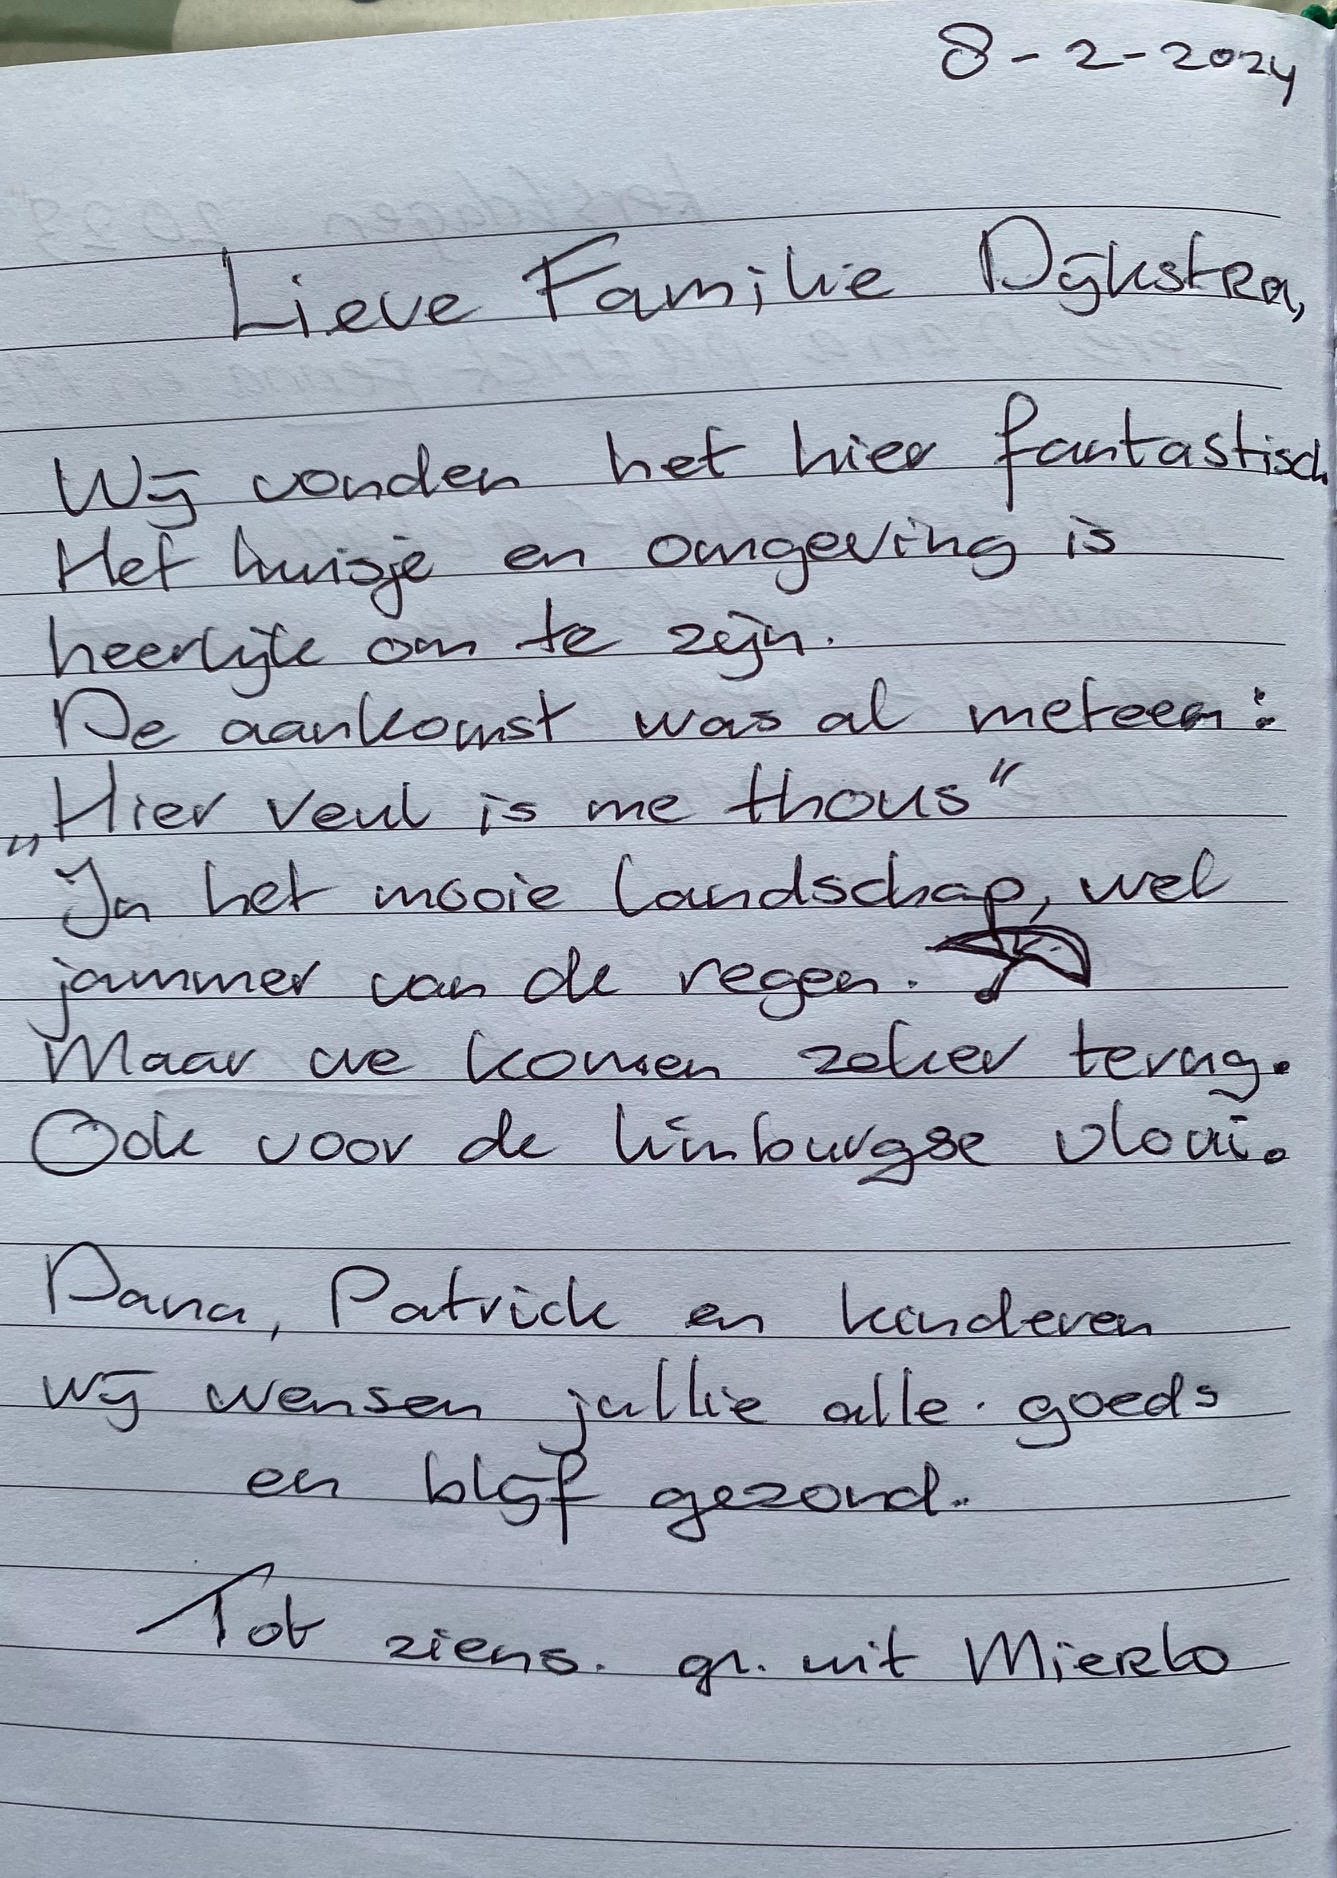 8-2-2024
Lieve Familie Dijkstra,
Wij vonden het hier fantastisch.
Het huisje en omgeving is
heerlijk om te zijn.
De aankomst was al meteen:
„Hier veul is me thous"
In het mooie landschap, wel
jammer van de regen.
Maar we komen zeker terug.
Ook voor de limburgse vlaai.
Dana, Patrick en kinderen
wij wensen jullie alle goeds
en blijf gezond.
Tot ziens. gr. uit Mierlo